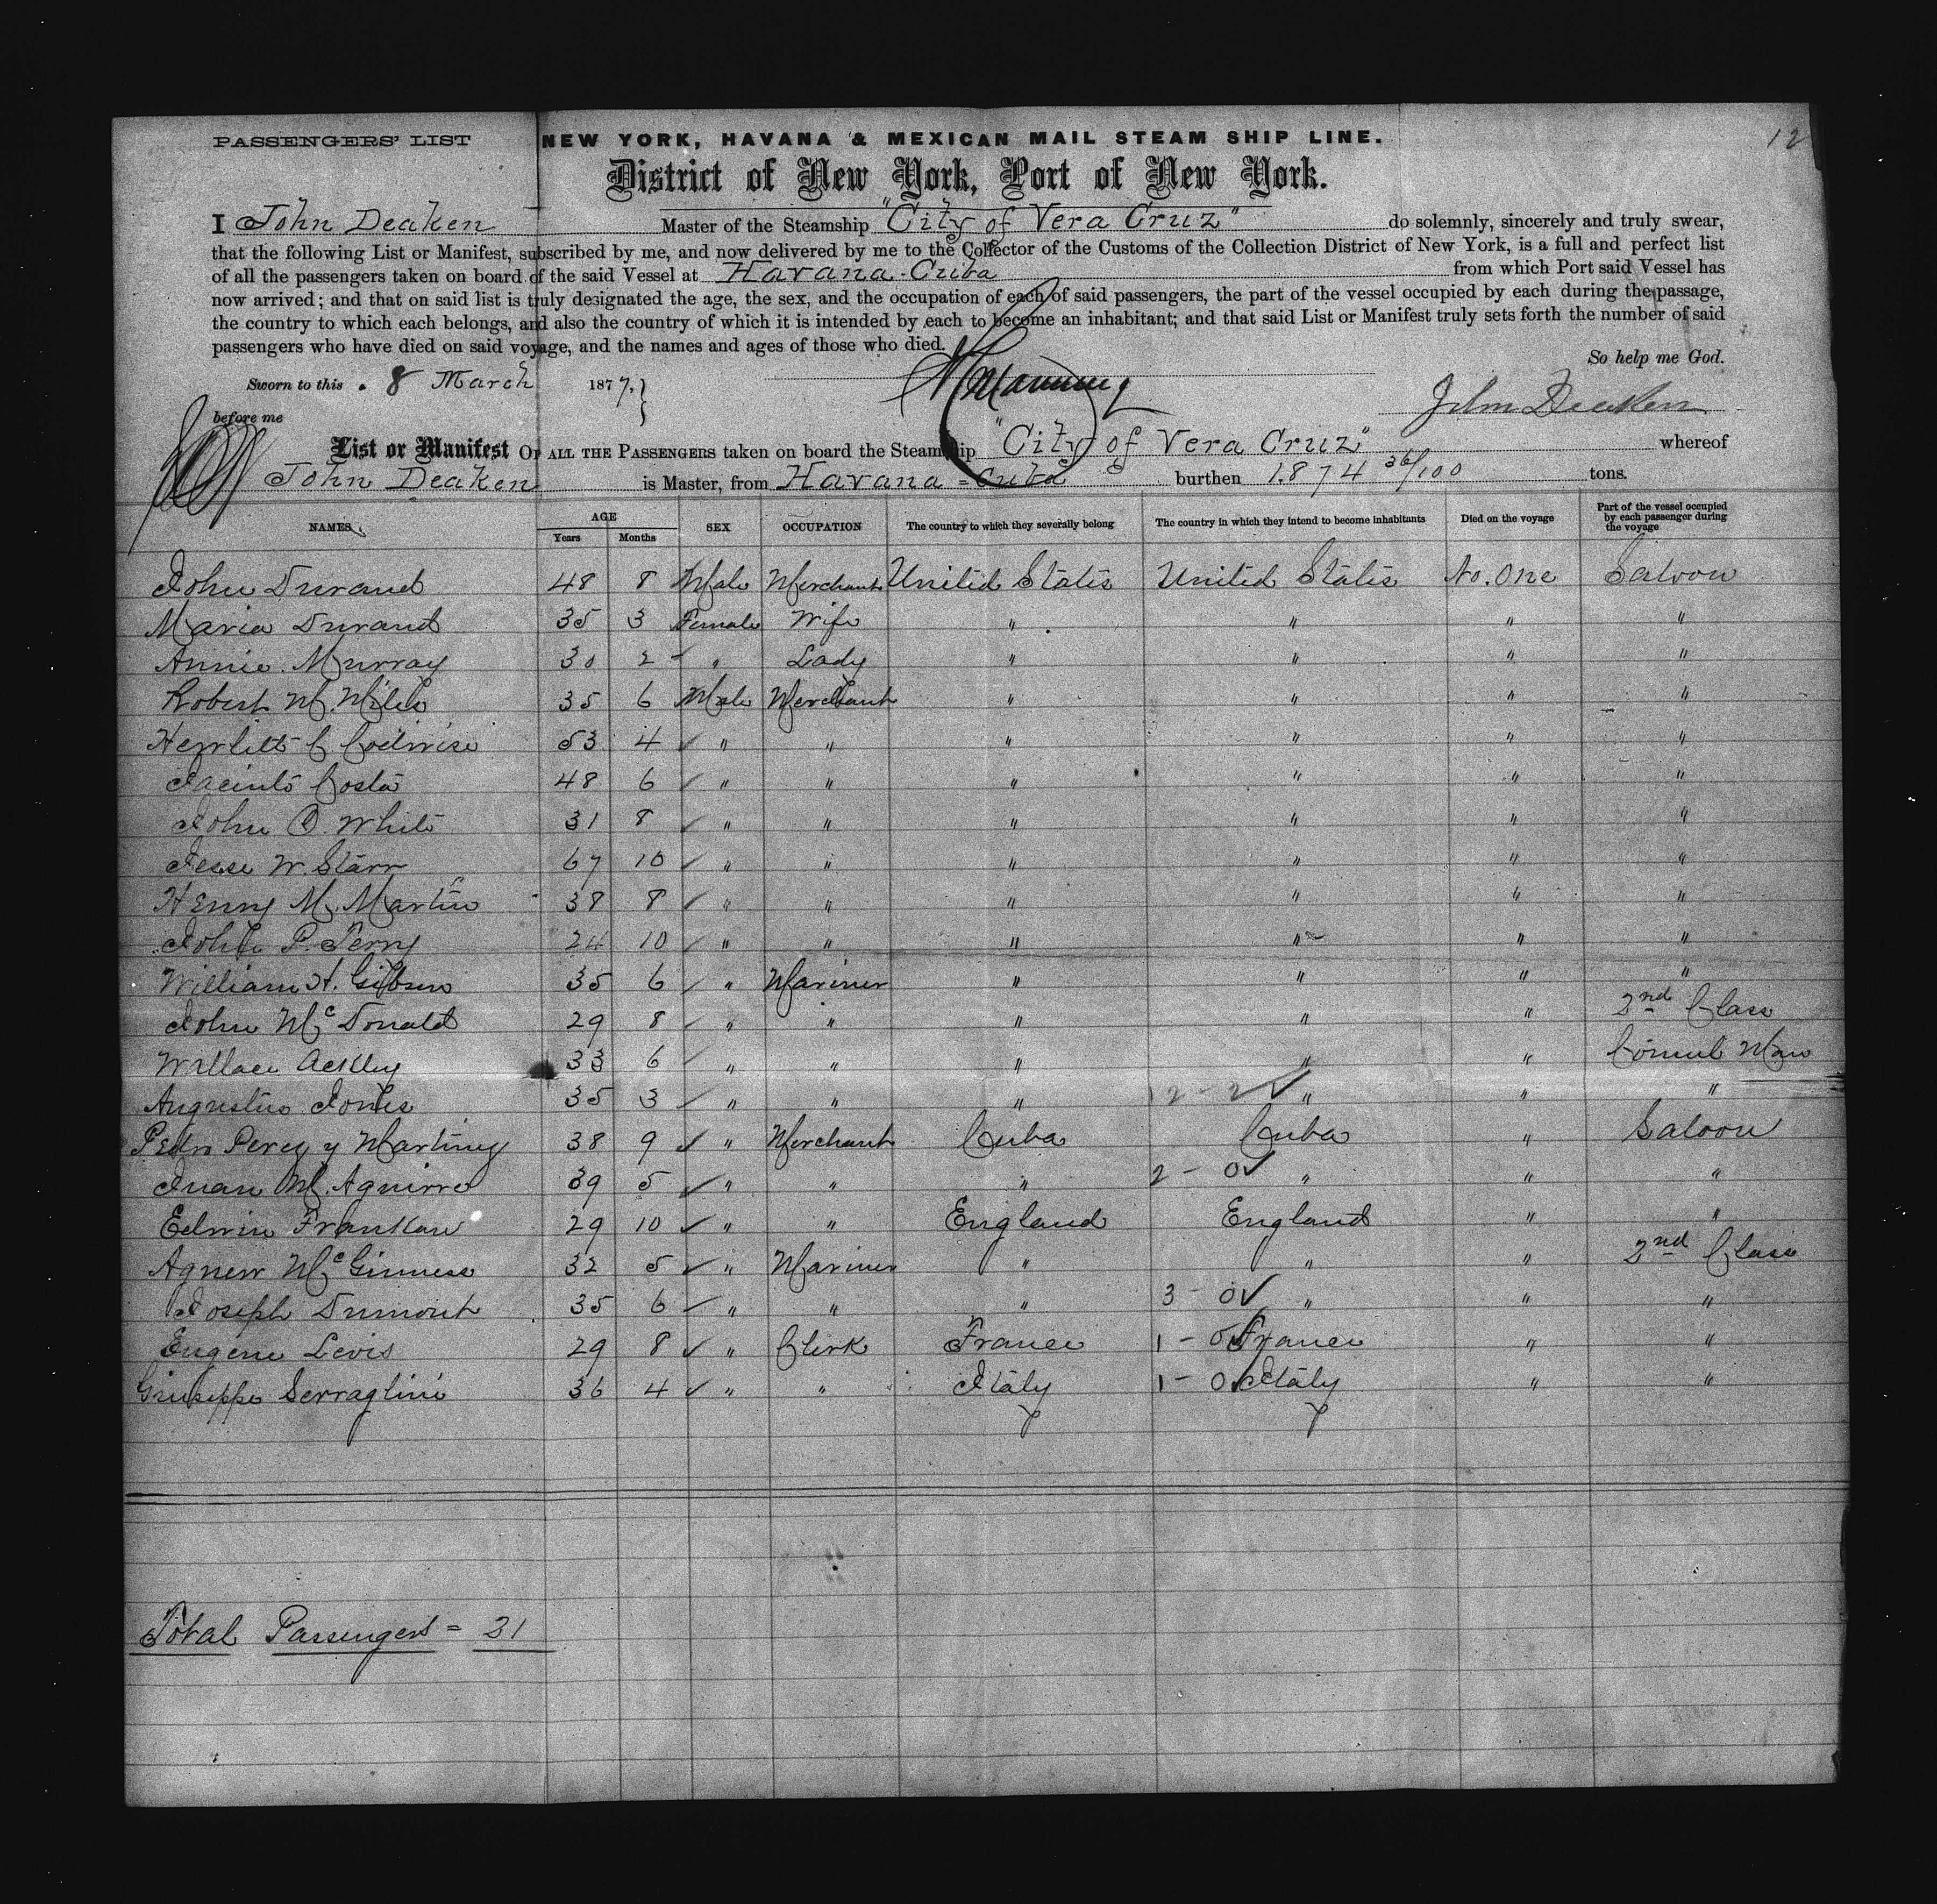 12
PASSENGERS' LIST NEW YORK, HAVANA & MEXICAN MAIL STEAM SHIP LINE.
District of New York, Port of New York.
I John Deaken Master of the Steamship "City of Vera Cruz" do solemnly, sincerely and truly swear,
that the following List or Manifest, subscribed by me, and now delivered by me to the Collector of the Customs of the Collection District of New York, is a full and perfect list
of all the passengers taken on board of the said Vessel at Havana - Cuba from which Port said Vessel has
now arrived; and that on said list is truly designated the age, the sex, and the occupation of each of said passengers, the part of the vessel occupied by each during the passage,
the country to which each belongs, and also the country of which it is intended by each to become an inhabitant; and that said List or Manifest truly sets forth the number of said
passengers who have died on said voyage, and the names and ages of those who died.
So help me God.
Sworn to this 8 March 1877. }
before me John Deaken
List or Manifest OF ALL THE PASSENGERS taken on board the Steamship "City of Vera Cruz" whereof
John Deaken is Master, from Havana = Cuba burthen 1.874 36/100 tons.
NAMES AGE Years Months SEX OCCUPATION The country to which they severally belong The country in which they intend to become inhabitants Died on the voyage Part of the vessel occupied by each passenger during the voyage
John Durand 48 8 Male Merchant United States United States No. One Saloon
Maria Durand 35 3 Female Wife " " " "
Annie Murray 30 2 " Lady " " " "
Robert M. Miles 35 6 Male Merchant " " " "
C 53 4 " " " " " "
Jacinto Costa 48 6 " " " " " "
John O. White 31 8 " " " " " "
Jesse W. Starr 67 10 " " " " " "
Henry M. Martin 38 8 " " " " " "
John P. Perry 24 10 " " " " " "
William H. Gibson 35 6 " Mariner " " " "
John McDonald 29 8 " " " " " 2nd Class
Wallace Ackley 33 6 " " " " " Consul Man
Augustus Jones 35 3 " " " 12 - 2 " " "
Pedro Perez y Martinez 38 9 " Merchant Cuba Cuba " Saloon
Juan M. Aguirre 39 5 " " " 2 - 0 " " "
Edwin Frankau 29 10 " " England England " "
Agnew McGinness 32 5 " Mariner " " " 2nd Class
Joseph Dumont 35 6 " " " 3 - 0 " " "
Eugene Levis 29 8 " Clerk France 1 - 0 France " "
Giuseppe Serraglini 36 4 " " Italy 1 - 0 Italy " "
Total Passengers = 21